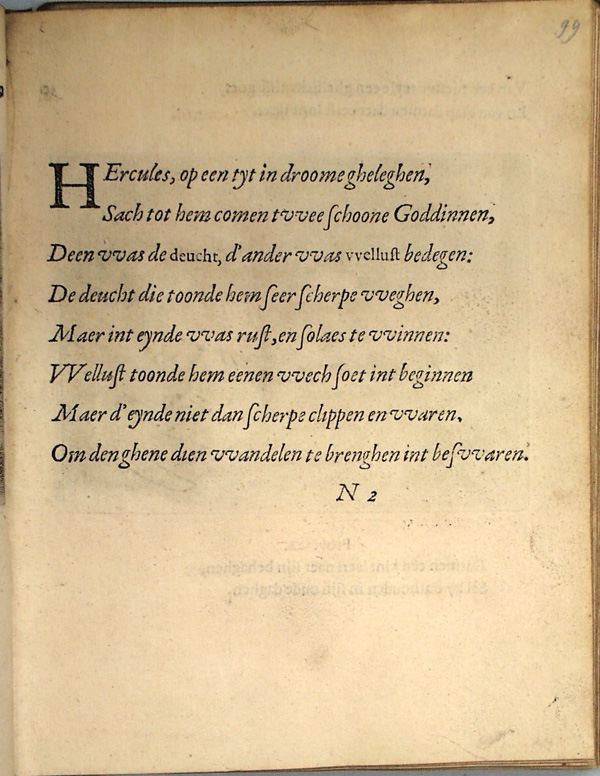 99
HErcules, op een tyt in droome gheleghen,
Sach tot hem comen tvvee ſchoone Goddinnen,
Deen vvas de deucht, d'ander vvas vvelluſt bedegen:
De deucht die toonde hem ſeer ſcherpe vveghen,
Maer int eynde vvas ruſt, en ſolaes te vvinnen:
VVelluſt toonde hem eenen vvech ſoet int beginnen
Maer d'eynde niet dan ſcherpe clippen en vvaren,
Om den ghene dien vvandelen te brenghen int beſvvaren.
N 2